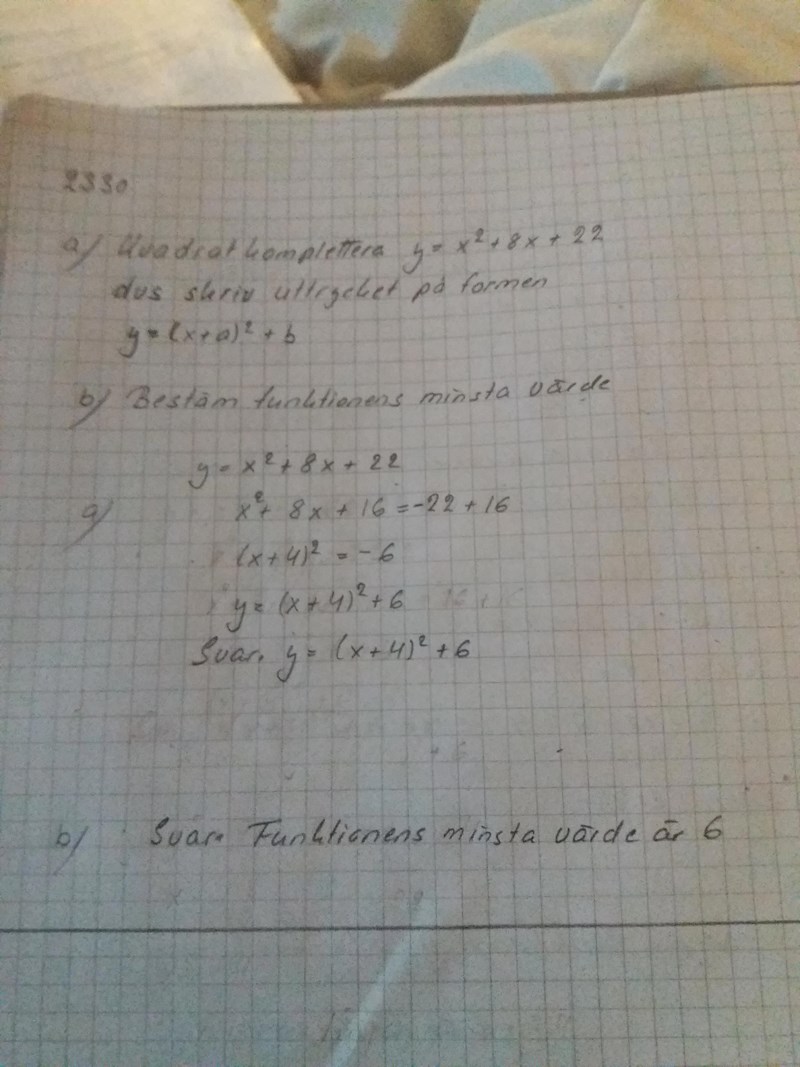 2330
a) Kvadratkomplettera y = x² + 8x + 22
dvs skriv uttrycket på formen
y = (x+a)² + b
b) Bestäm funktionens minsta värde
y = x² + 8x + 22
a) x² + 8x + 16 = -22 + 16
(x+4)² = -6
y = (x+4)² + 6
Svar. y = (x+4)² + 6
b) Svar. Funktionens minsta värde är 6